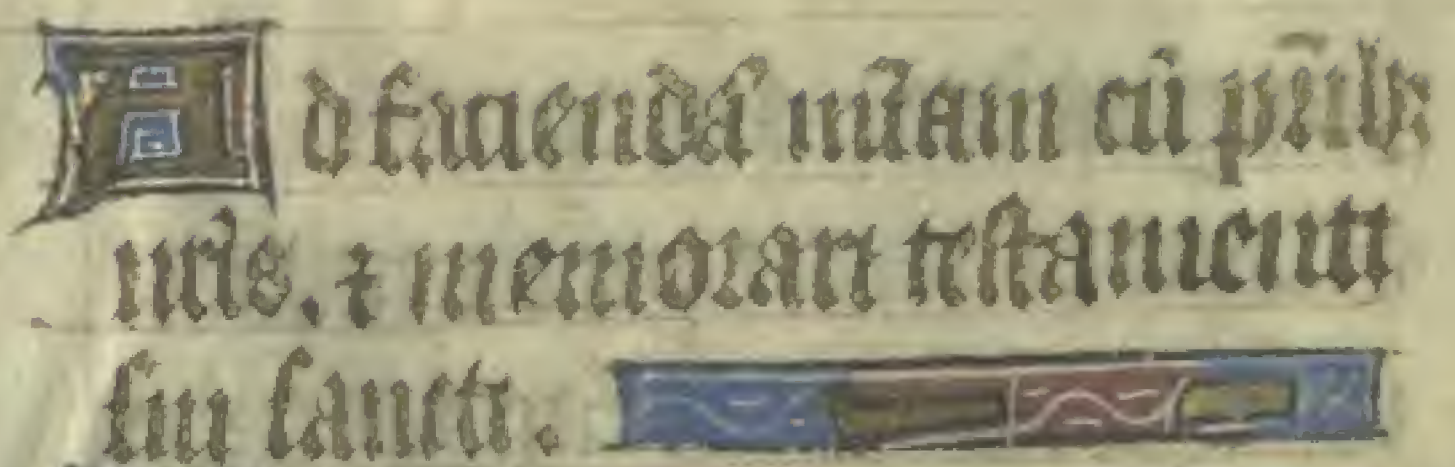 Ad faciendā mīam cū pr̄ib;
nr̄is. ⁊ memorari testamenti
sui sancti.